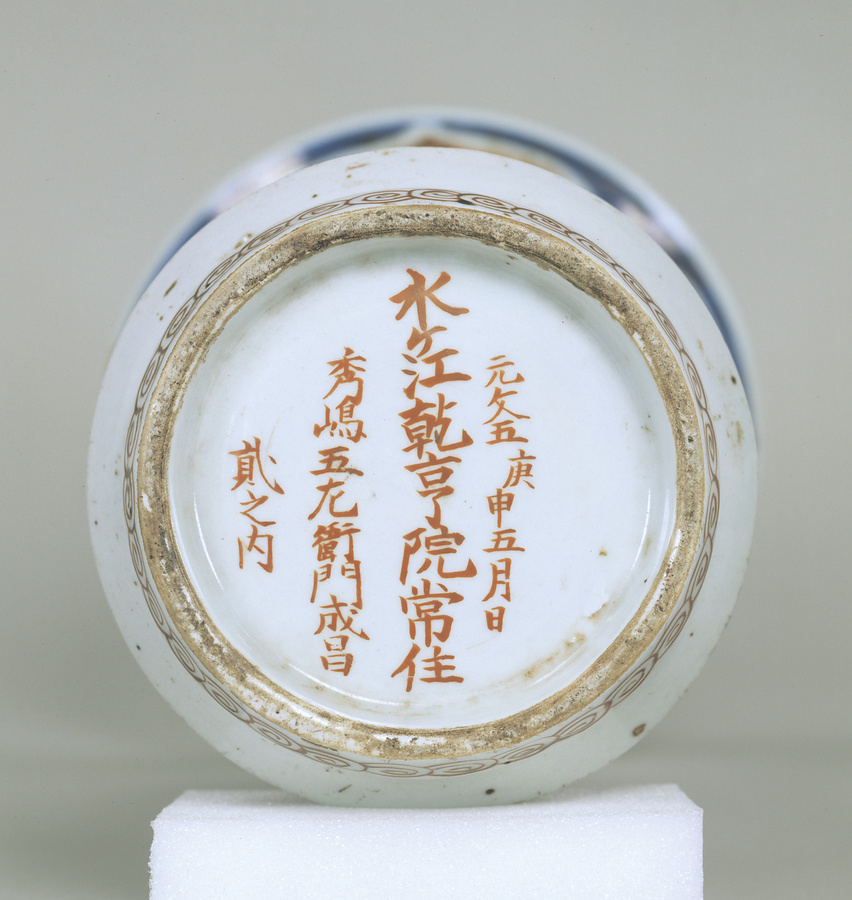 元文五庚申五月日
水ケ江乾亨院常住
秀嶋五左衛門成昌
貮之内